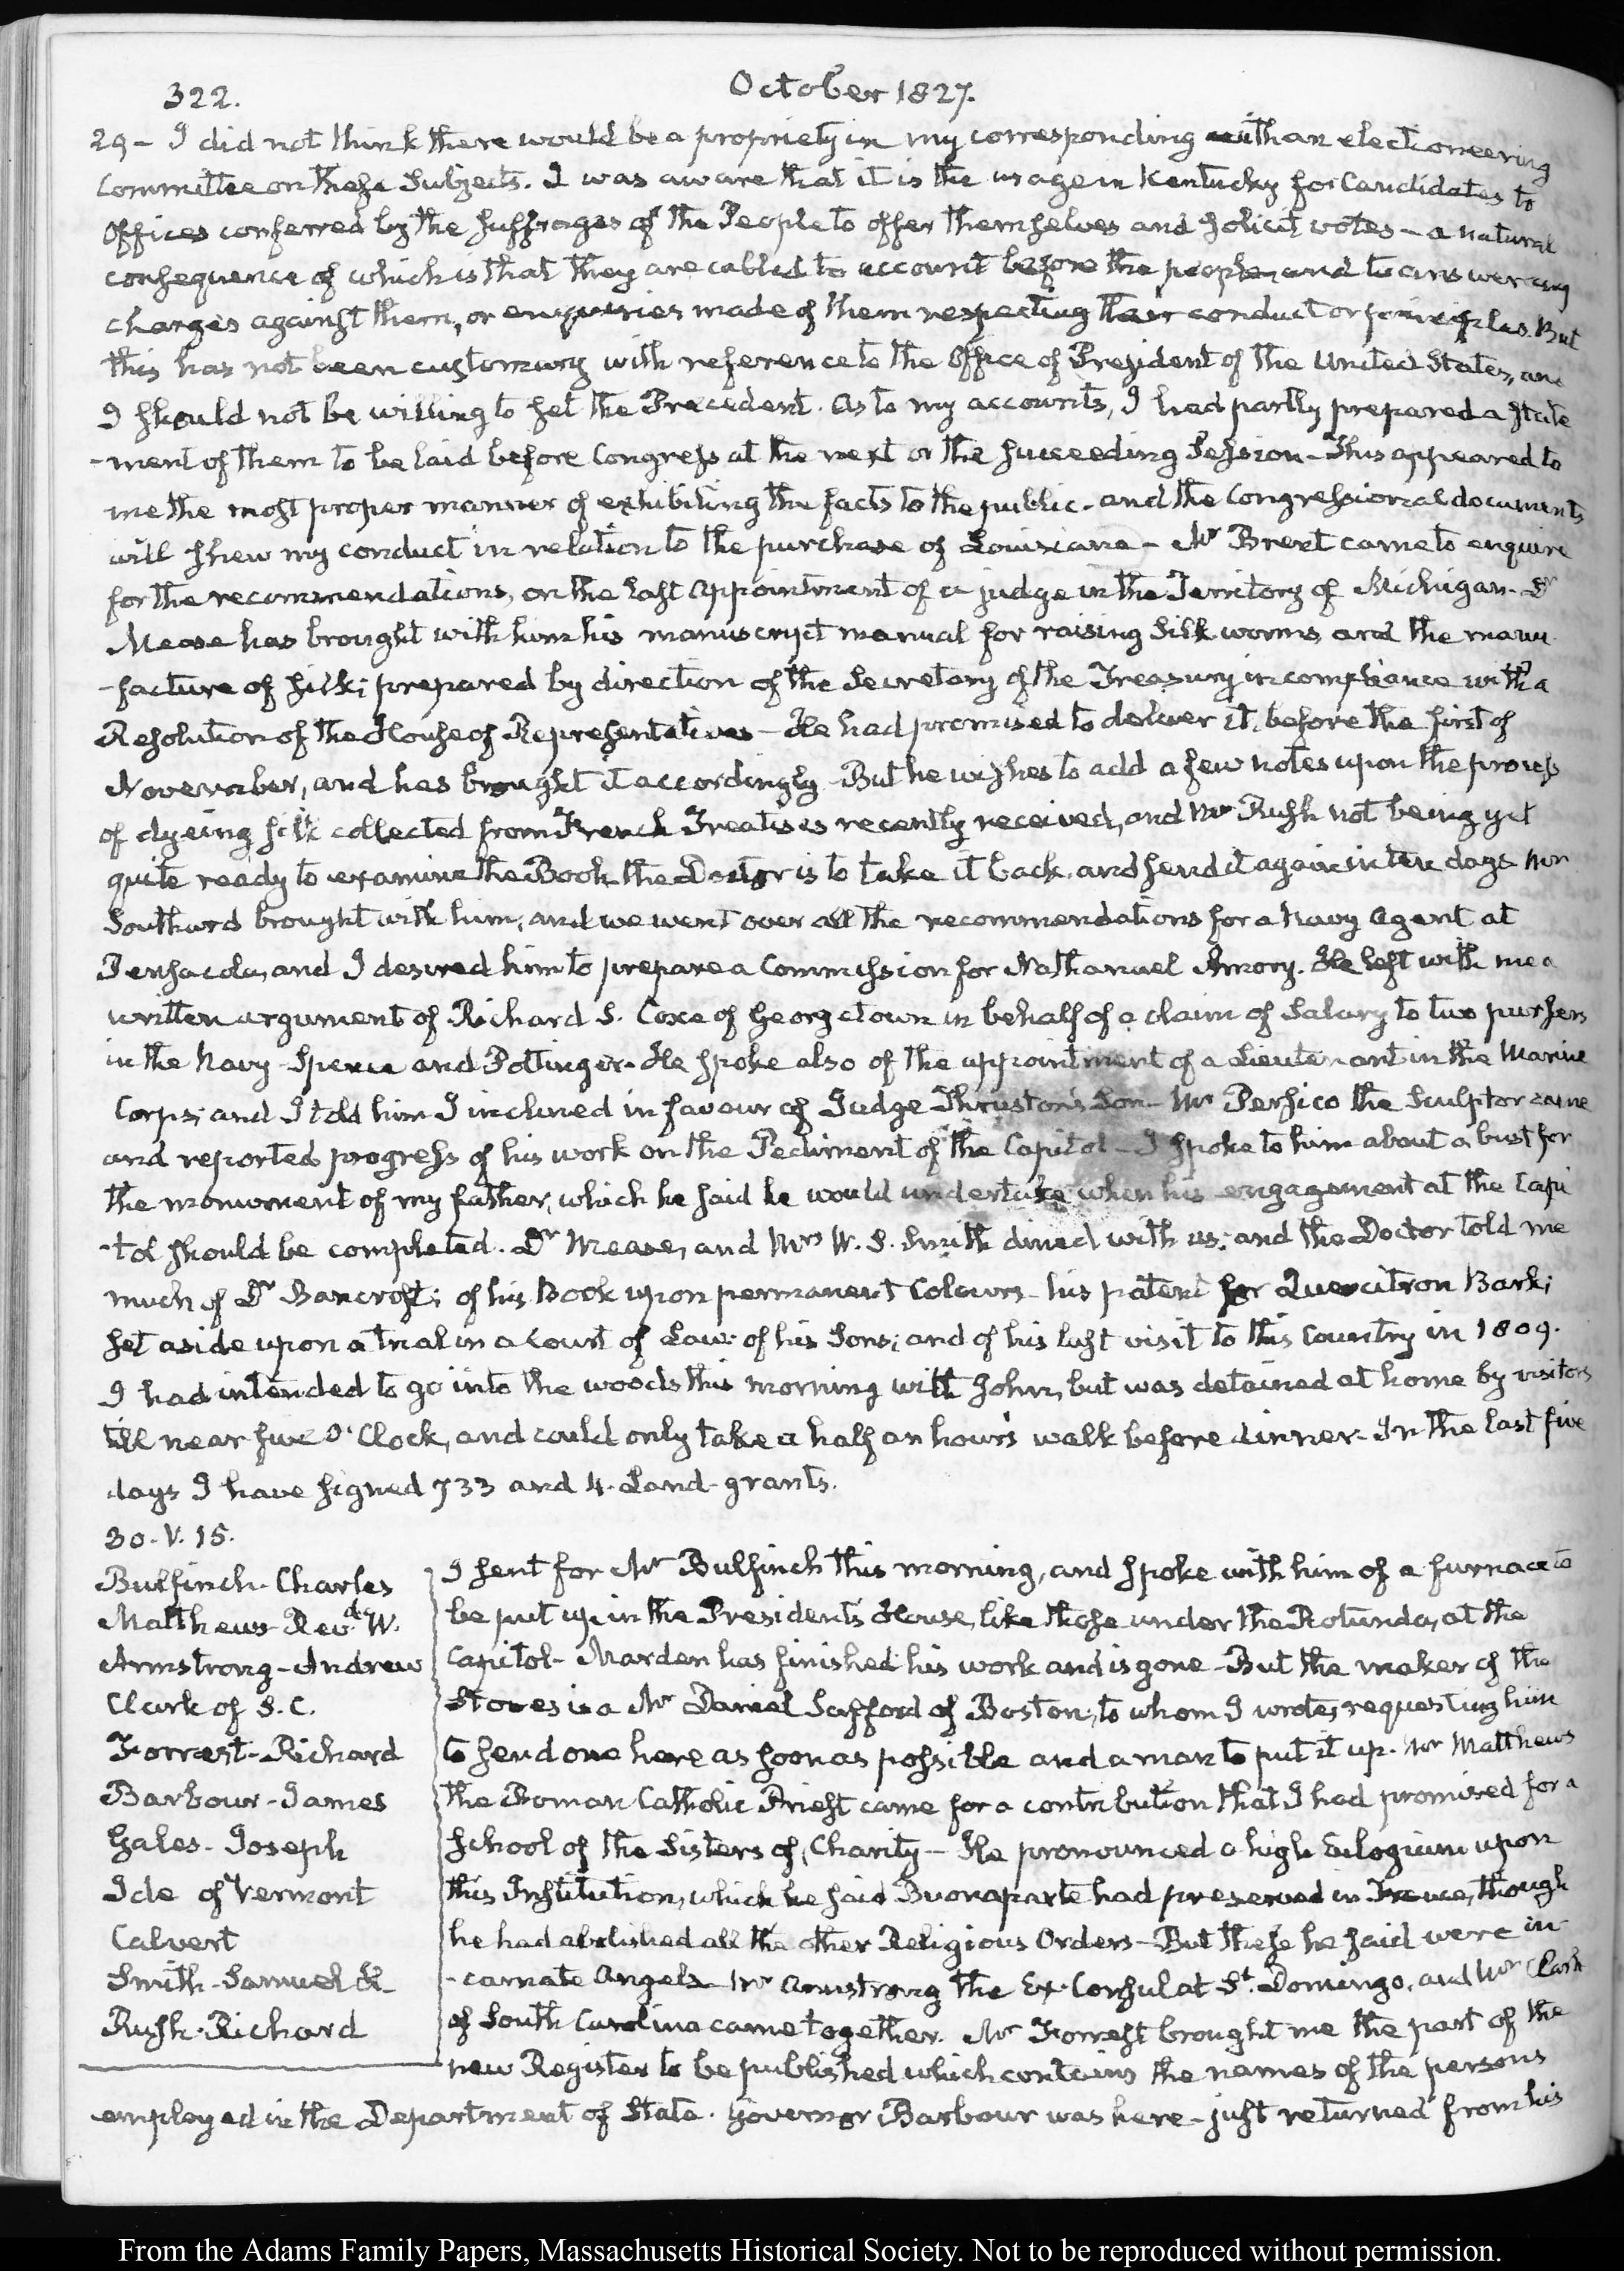 322.
October 1827.
29 - I did not think there would be a propriety in my corresponding with an electioneering
Committee on these Subjects. I was aware that it is the usage in Kentucky for Candidates to
Offices conferred by the suffrages of the People to offer themselves and solicit votes - a natural
consequence of which is that they are called to account before the people, and to answer any
charges against them, or enquiries made of them respecting their conduct or principles. But
this has not been customary with reference to the Office of President of the United States, and
I should not be willing to set the Precedent. As to my accounts, I had partly prepared a State
-ment of them to be laid before Congress at the next or the succeeding Session - This appeared to
me the most proper manner of exhibiting the facts to the public - and the Congressional documents
will shew my conduct in relation to the purchase of Louisiana - Mr Brent came to enquire
for the recommendations, on the last appointment of a judge in the Territory of Michigan - Dr
Mease has brought with him his manuscript manual for raising Silk worms and the manu
-facture of silk; prepared by direction of the Secretary of the Treasury in compliance with a
Resolution of the House of Representatives - He had promised to deliver it, before the first of
November, and has brought it accordingly - But he wishes to add a few notes upon the process
of dyeing silk collected from French Treatises recently received, and Mr Rush not being yet
quite ready to examine the Book the Doctor is to take it back, and send it again in ten days Mr
Southard brought with him, and we went over all the recommendations for a Navy Agent at
Pensacola, and I desired him to prepare a Commission for Nathaniel Amory. He left with me a
written argument of Richard S. Coxe of Georgetown in behalf of a claim of Salary to two pursers
in the Navy Spence and Pottinger - He spoke also of the appointment of a Lieutenant in the Marine
Corps; and I told him I inclined in favour of Judge Thruston's Son - Mr Persico the Sculptor came
and reported progress of his work on the Pediment of the Capitol - I spoke to him about a bust for
the monument of my father, which he said he would undertake when his engagement at the Capi
-tol should be completed. Dr Mease, and Mrs W. S. Smith dined with us; and the Doctor told me
much of Dr Bancroft; of his Book upon permanent Colours - his patent for Quercitron Bark;
set aside upon a trial in a Court of Law: of his Sons; and of his last visit to this Country in 1809.
I had intended to go into the woods this morning with John, but was detained at home by visitors
till near five O'Clock, and could only take a half an hour's walk before dinner - In the last five
days I have signed 733 and 4. Land-grants.
30. V. 15.
Bulfinch - Charles
Matthews - Revd. W.
Armstrong - Andrew
Clark of S. C.
Forrest - Richard
Barbour - James
Gales - Joseph
Ide of Vermont
Calvert
Smith - Samuel H.
Rush - Richard
I sent for Mr Bulfinch this morning, and spoke with him of a furnace to
be put up in the Presidents House, like those under the Rotunda, at the
Capitol - Marden has finished his work and is gone - But the maker of the
Stoves is a Mr Daniel Safford of Boston, to whom I wrote, requesting him
to send one here as soon as possible and a man to put it up - Mr Matthews
the Roman Catholic Priest came for a contribution that I had promised for a
School of the Sisters of Charity - He pronounced a high Eulogium upon
this Institution, which he said Buonaparte had preserved in France, though
he had abolished all the other Religious Orders - But these he said were in
-carnate Angels - Mr Armstrong the Ex-Consul at St. Domingo, and Mr Clark
of South Carolina came together. Mr Forrest brought me the part of the
new Register to be published which contains the names of the persons
employed in the Department of State. Governor Barbour was here - just returned from his
From the Adams Family Papers, Massachusetts Historical Society. Not to be reproduced without permission.